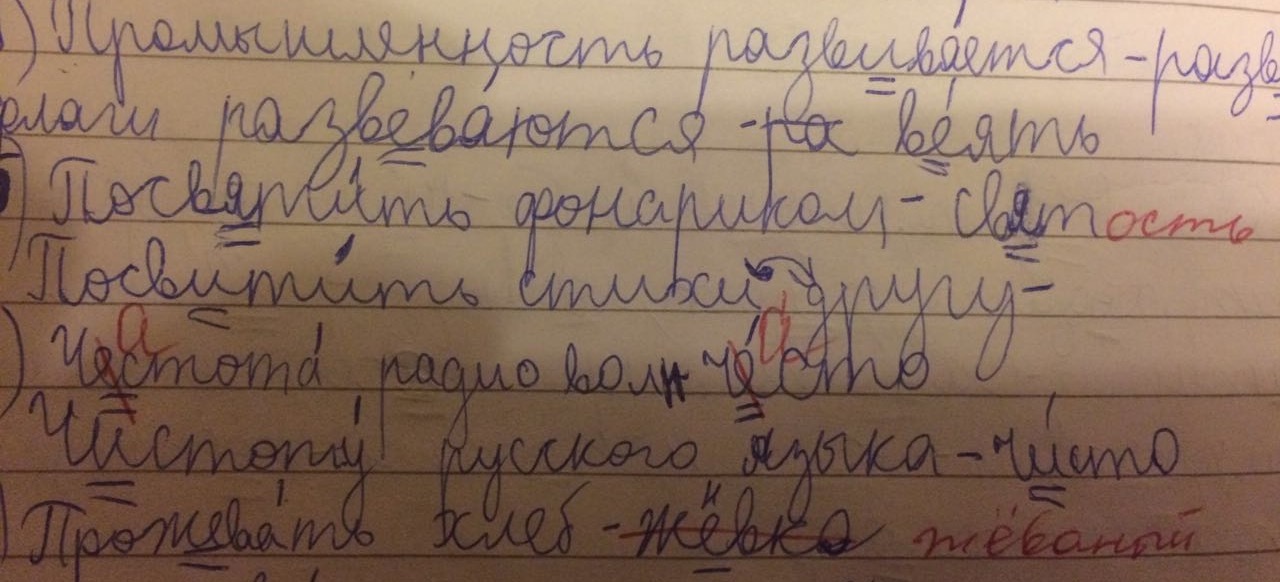 ) Промышленность развивается - разв
флаги развеваются - ра веять
) Посвятить фонариком - святость
Посвитить стихи другу -
) Частота радио волн часто
Чистоту русского языка - чисто
) Прожевать хлеб - жёвка жёваный